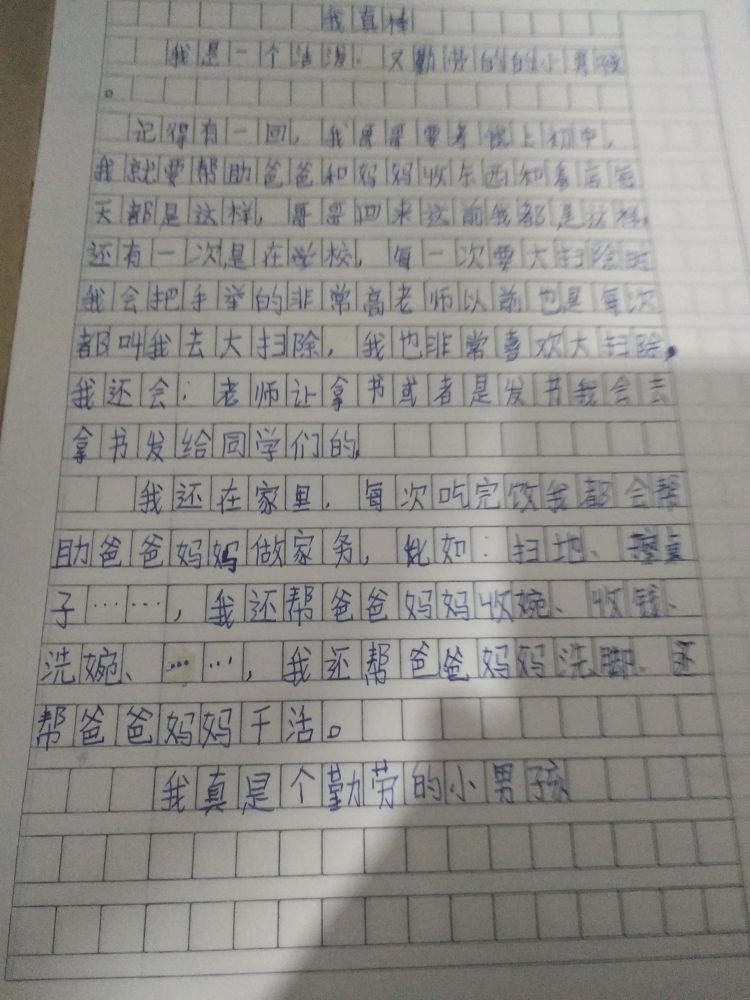 我真棒
我是一个活泼、又勤劳的的小男孩
。
记得有一回，我哥哥要考试上初中，
我就要帮助爸爸和妈妈收东西和看店每
天都是这样，哥哥回来这前我都是这样。
还有一次是在学校，每一次要大扫除时
我会把手举的非常高老师以前也是每次
都叫我去大扫除，我也非常喜欢大扫除，
我还会；老师让拿书或者是发书我会去
拿书发给同学们的
我还在家里，每次吃完饭我都会帮
助爸爸妈妈做家务，比如：扫地、擦桌
子……，我还帮爸爸妈妈收婉、收钱、
洗婉、……，我还帮爸爸妈妈洗脚、还
帮爸爸妈妈干活。
我真是个勤劳的小男孩